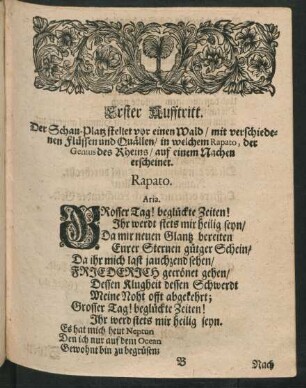 Erster Aufftritt.
Der Schau-Platz stellet vor einen Wald / mit verschiede-
nen Flüssen und Quällen / in welchem Rapato, der
Genius des Rheins / auf einem Nachen
erscheinet.
Rapato.
Aria.
GRosser Tag! beglückte Zeiten!
Ihr werdt stets mir heilig seyn /
Da mir neuen Glantz bereiten
Eurer Sternen gütger Schein /
Da ihr mich last jauchzend sehen /
FRIEDERICH gecrönet gehen /
Dessen Klugheit dessen Schwerdt
Meine Noht offt abgekehrt;
Grosser Tag! beglückte Zeiten!
Ihr werd stets mir heilig seyn.
Es hat mich heut Neptun
Den ich nur auf dem Ocean
Gewohnt bin zu begrüssen;
B
Nach